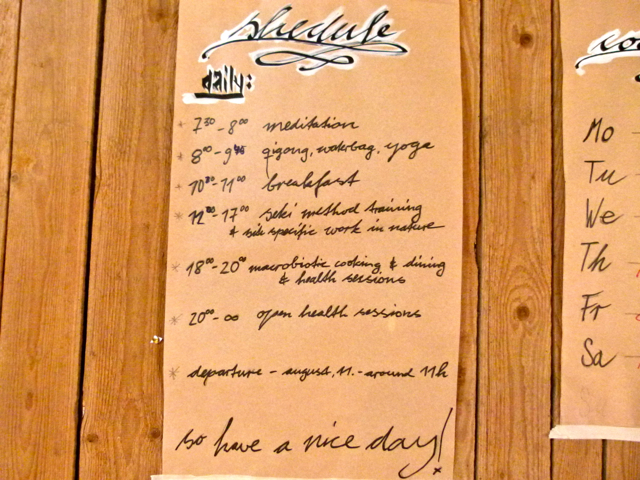 schedule
daily:
* 7³⁰ - 8⁰⁰ meditation
* 8⁰⁰ - 9⁴⁵ qigong, waterbag, yoga
* 10³⁰ - 11⁰⁰ breakfast
* - 17⁰⁰ seki method training
& specific work in nature
* 18⁰⁰ - 20⁰⁰ macrobiotic cooking & dining
& health sessions
* 20⁰⁰ - ∞ open health sessions
* departure - august, 11. - around 11h
so have a nice day!
x
Mo
Tu
We
Th
Fr
Sa